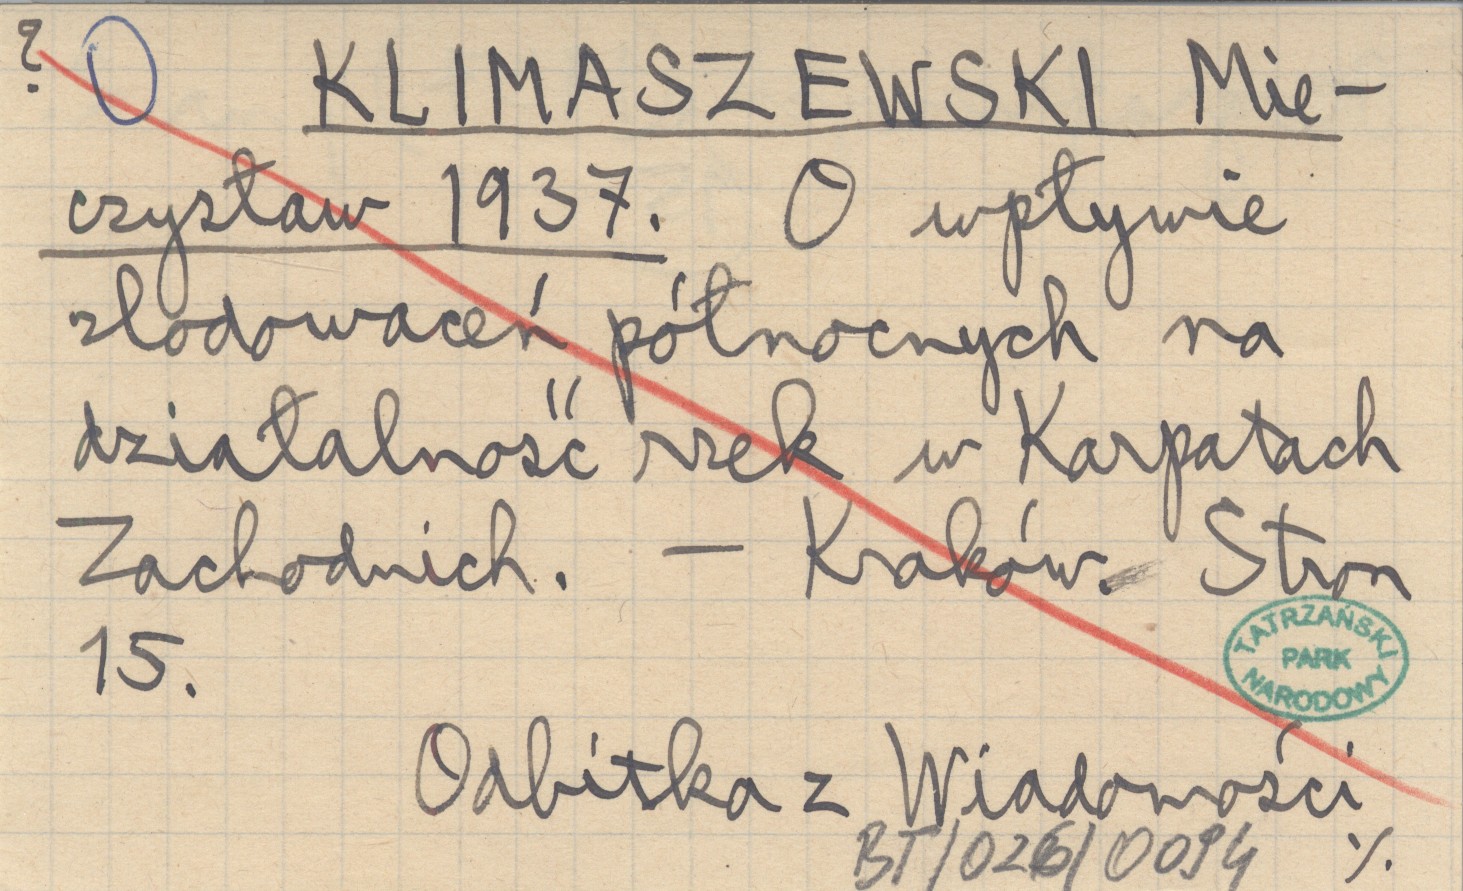 ? O KLIMASZEWSKI Mie-
czysław 1937. O wpływie
zlodowaceń północnych na
działalność rzek w Karpatach
Zachodnich. — Kraków. Stron
15.
TATRZAŃSKI
PARK
NARODOWY
Odbitka z Wiadomości
BT/026/0094 ./.